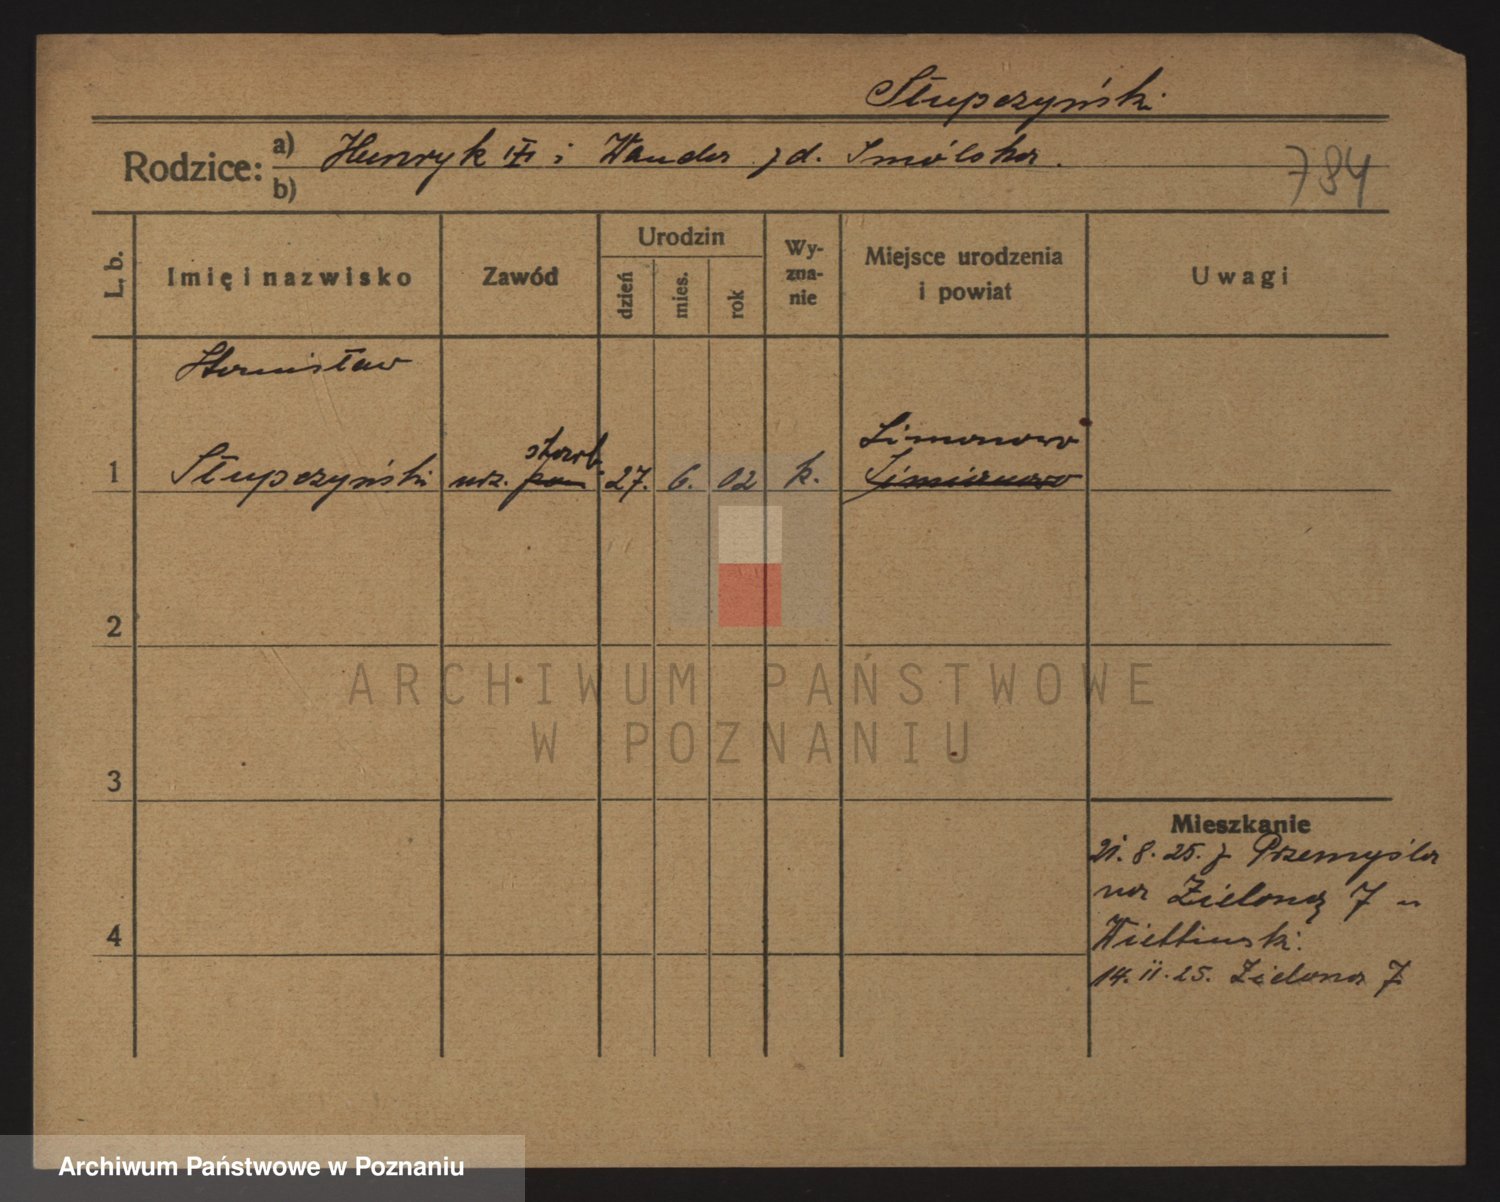 Słupczyński
Rodzice: a) Henryk i Wanda z d. Smólska.
b)
784
L. b. Imię i nazwisko Zawód Urodzin dzień mies. rok Wyznanie Miejsce urodzenia i powiat Uwagi
Stanisław
Limanowa
skarb.
1 Słupczyński urz. 27. 6. 02 k.
2
ARCHIWUM PAŃSTWOWE
W POZNANIU
3
Mieszkanie
21. 8. 25. z Przemyśla
na Zieloną 7 u
4
14. 11. 25. Zielona 7
Archiwum Państwowe w Poznaniu